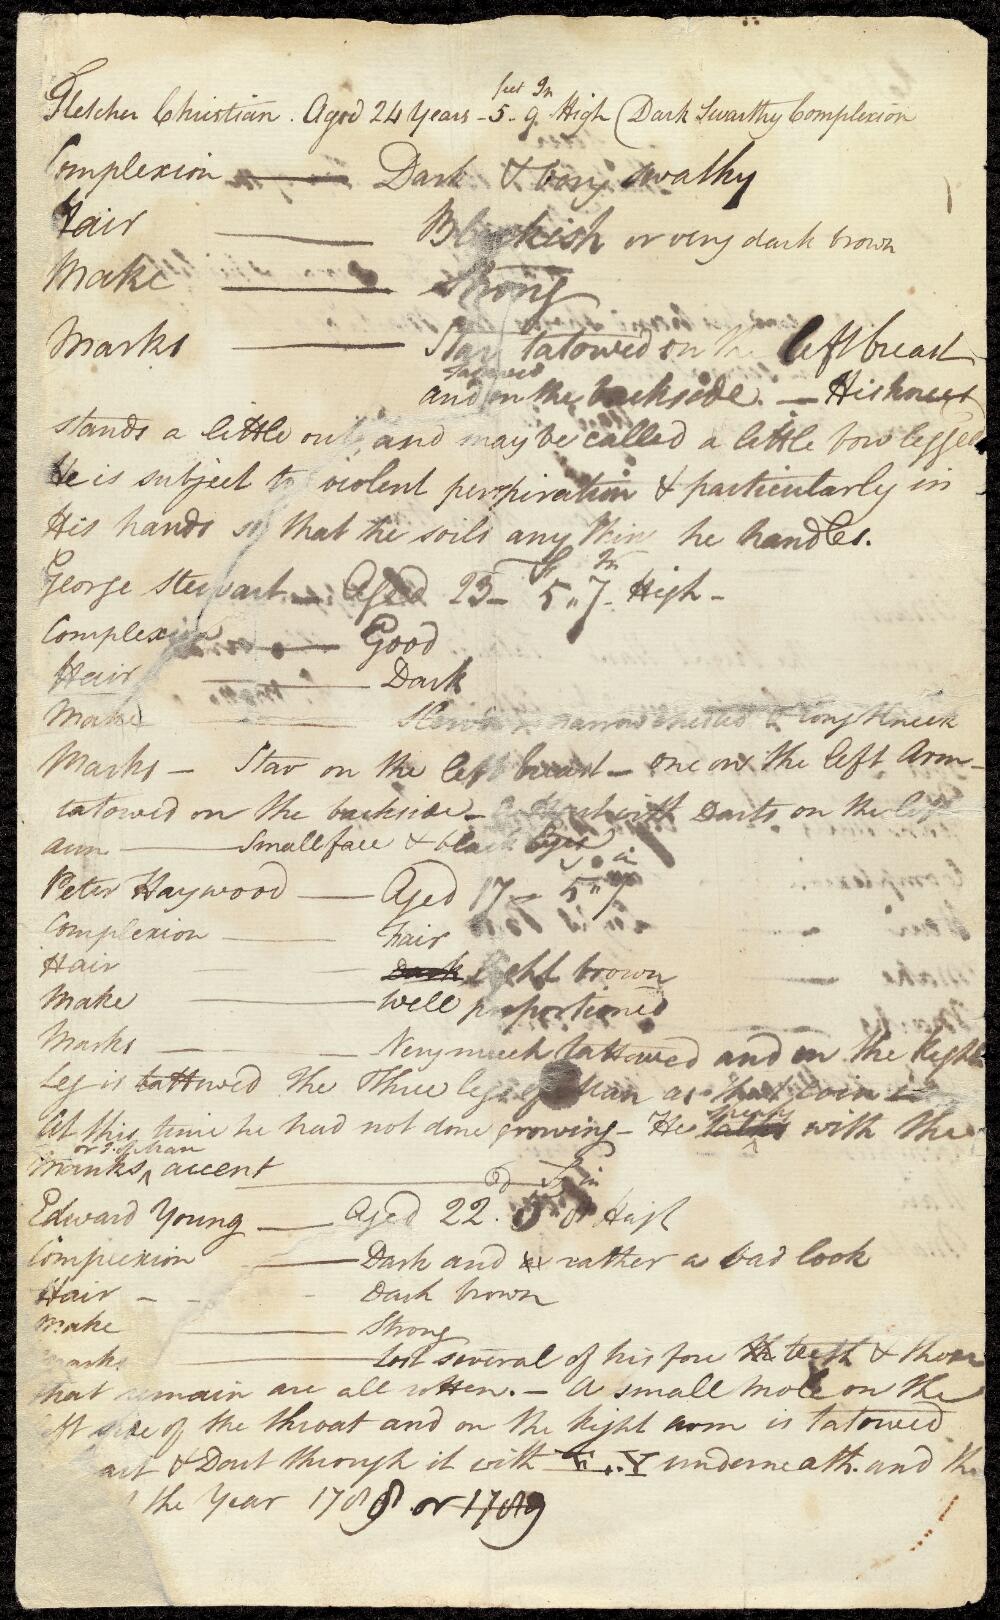 feet In
Fletcher Christian. Aged 24 Years - 5 - 9 High (Dark Swarthy Complexion
Complexion —— Dark & very swathy
Hair —— Blackish or very dark brown
Make —— Strong
Marks —— Star tatowed on the left breast
tatowed
and on the backside. — His knees
stands a little out and may be called a little bow legged
He is subject to violent perspiration & particularly in
His hands so that he soils any thing he handles.
George Stewart — Aged 23 - 5 ft 7 In High -
Complexion —— Good
Hair —— Dark
Make —— Slender narrow chested & long Neck
Marks — Star on the left breast — one on the left Arm -
tatowed on the backside - with Darts on the left
arm —— Small face & black Eyes
Peter Haywood —— Aged 17 - 5 " 7
Complexion —— Fair
Hair —— Dark light brown
Make —— Well proportioned
Marks —— Very much tattowed and on the Right
Leg is tattowed the Three legs of Man as that coin is
At this time he had not done growing - He speaks with the
or I. of Man
Manks accent
Edward Young —— Aged 22. 5 8 High
Complexion —— Dark and rather a bad look
Hair - - - Dark brown
Make —— Strong
Marks —— Lost several of his fore teeth & those
that remain are all rotten. — A small mole on the
left side of the throat and on the Right arm is tatowed
& Dart through it with E.. Y underneath. and the
the Year 1788 or 1789